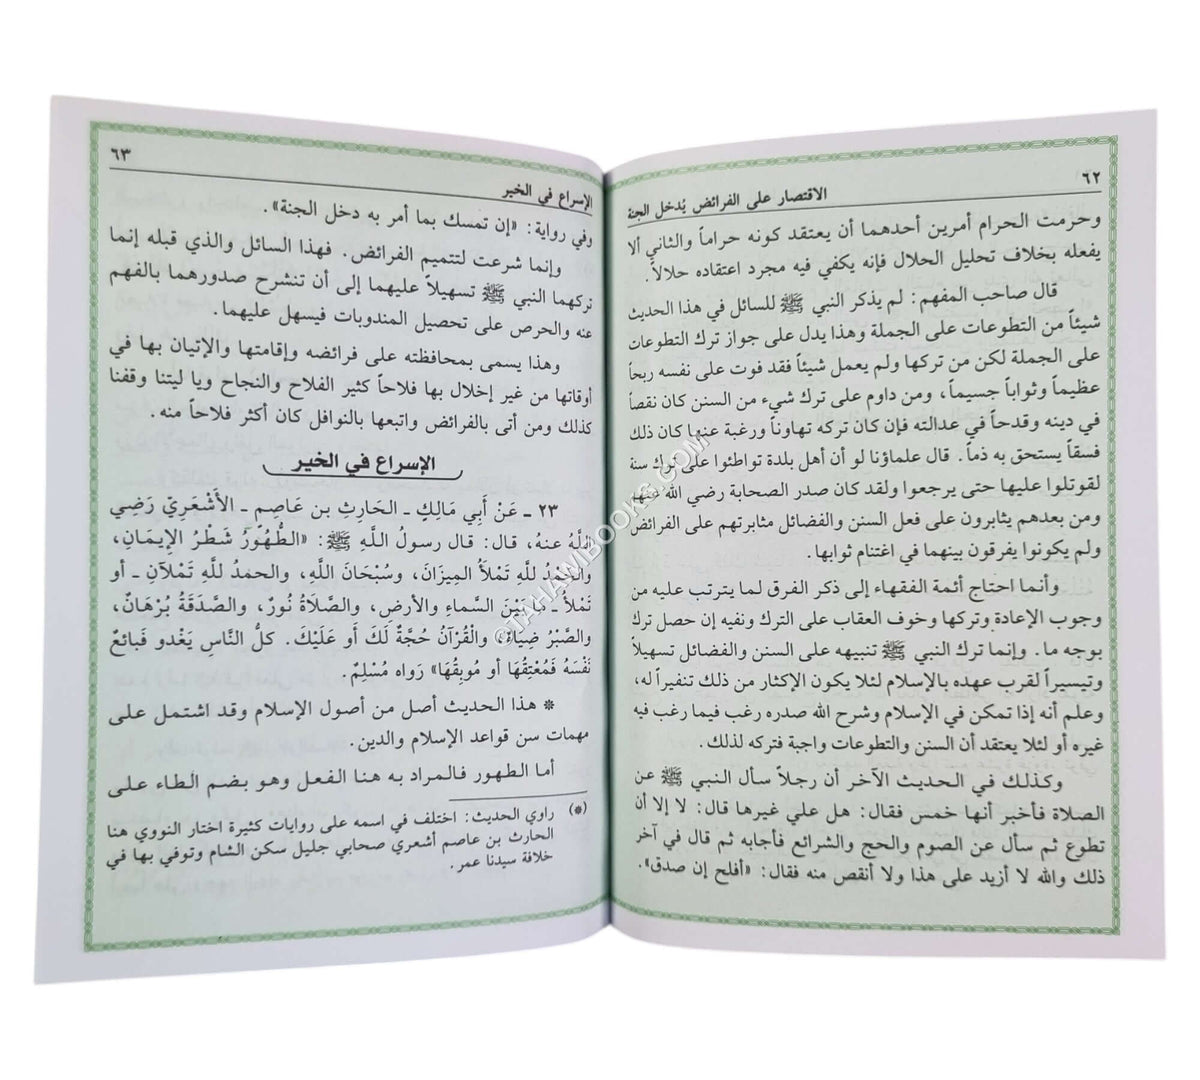 ٦٢
الاقتصار على الفرائض يُدخل الجنة
وحرمت الحرام أمرين أحدهما أن يعتقد كونه حراماً والثاني ألا
يفعله بخلاف تحليل الحلال فإنه يكفي فيه مجرد اعتقاده حلالاً.
قال صاحب المفهم: لم يذكر النبي ﷺ للسائل في هذا الحديث
شيئاً من التطوعات على الجملة وهذا يدل على جواز ترك التطوعات
على الجملة لكن من تركها ولم يعمل شيئاً فقد فوت على نفسه ربحاً
عظيماً وثواباً جسيماً، ومن داوم على ترك شيء من السنن كان نقصاً
في دينه وقدحاً في عدالته فإن كان تركه تهاوناً ورغبة عنها كان ذلك
فسقاً يستحق به ذماً. قال علماؤنا لو أن أهل بلدة تواطئوا على ترك سنة
لقوتلوا عليها حتى يرجعوا ولقد كان صدر الصحابة رضي الله عنهم
ومن بعدهم يثابرون على فعل السنن والفضائل مثابرتهم على الفرائض
ولم يكونوا يفرقون بينهما في اغتنام ثوابها.
وأنما احتاج أئمة الفقهاء إلى ذكر الفرق لما يترتب عليه من
وجوب الإعادة وتركها وخوف العقاب على الترك ونفيه إن حصل ترك
بوجه ما. وإنما ترك النبي ﷺ تنبيهه على السنن والفضائل تسهيلاً
وتيسيراً لقرب عهده بالإسلام لئلا يكون الإكثار من ذلك تنفيراً له،
وعلم أنه إذا تمكن في الإسلام وشرح الله صدره رغب فيما رغب فيه
غيره أو لئلا يعتقد أن السنن والتطوعات واجبة فتركه لذلك.
وكذلك في الحديث الآخر أن رجلاً سأل النبي ﷺ عن
الصلاة فأخبر أنها خمس فقال: هل علي غيرها قال: لا إلا أن
تطوع ثم سأل عن الصوم والحج والشرائع فأجابه ثم قال في آخر
ذلك والله لا أزيد على هذا ولا أنقص منه فقال: «أفلح إن صدق».
٦٣
الإسراع في الخير
وفي رواية: «إن تمسك بما أمر به دخل الجنة».
وإنما شرعت لتتميم الفرائض. فهذا السائل والذي قبله إنما
تركهما النبي ﷺ تسهيلاً عليهما إلى أن تنشرح صدورهما بالفهم
عنه والحرص على تحصيل المندوبات فيسهل عليهما.
وهذا يسمى بمحافظته على فرائضه وإقامتها والإتيان بها في
أوقاتها من غير إخلال بها فلاحاً كثير الفلاح والنجاح ويا ليتنا وقفنا
كذلك ومن أتى بالفرائض واتبعها بالنوافل كان أكثر فلاحاً منه.
الإسراع في الخير
٢٣ ـ عَنْ أَبِي مَالِكٍ ـ الحَارِثِ بن عَاصِمٍ ـ الأَشْعَرِيّ رَضِي
اللَّهُ عنهُ، قال: قال رسولُ اللَّهِ ﷺ: «الطُّهُورُ شَطْرُ الإِيمَانِ،
والحَمْدُ للَّهِ تَمْلَأُ المِيزَانَ، وسُبْحَانَ اللَّهِ، والحمدُ للَّهِ تَمْلآنِ ـ أو
تَمْلأُ ـ ما بَيْنَ السَّماءِ والأرضِ، والصَّلاةُ نُورٌ، والصَّدَقَةُ بُرْهَانٌ،
والصَّبْرُ ضِيَاءٌ، والْقُرآنُ حُجَّةٌ لَكَ أَو عَلَيْكَ. كلُّ النَّاسِ يَغْدو فَبائعٌ
نَفْسَهُ فَمُعْتِقُهَا أو مُوبِقُهَا» رَواه مُسْلِمٌ.
* هذا الحديث أصل من أصول الإسلام وقد اشتمل على
مهمات سن قواعد الإسلام والدين.
أما الطهور فالمراد به هنا الفعل وهو بضم الطاء على
(*) راوي الحديث: اختلف في اسمه على روايات كثيرة اختار النووي هنا
الحارث بن عاصم أشعري صحابي جليل سكن الشام وتوفي بها في
خلافة سيدنا عمر.
©TAHAWIBOOKS.COM